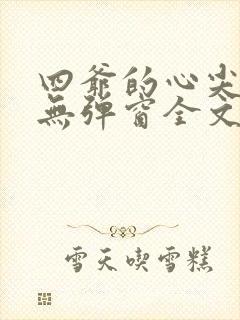 四爺的心尖
無彈窗全文
雪天喫雪糕